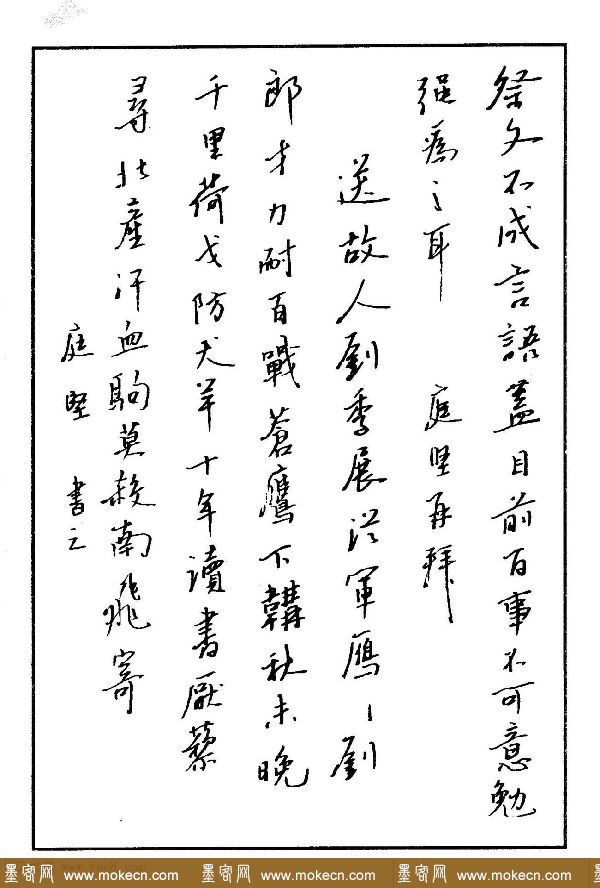 祭文不成言語蓋目前百事不可意勉
强為之耳 庭堅再拜
送故人劉季展從軍鴈劉
郎才力耐百戰蒼鷹下韝秋未晚
千里荷戈防犬羊十年讀書厭藜
尋北產汗血駒莫殺南飛寄
庭堅 書之
墨客网 www.mokecn.com 墨客网 www.mokecn.com 墨客网 www.mokecn.com 墨客网 www.mokecn.com